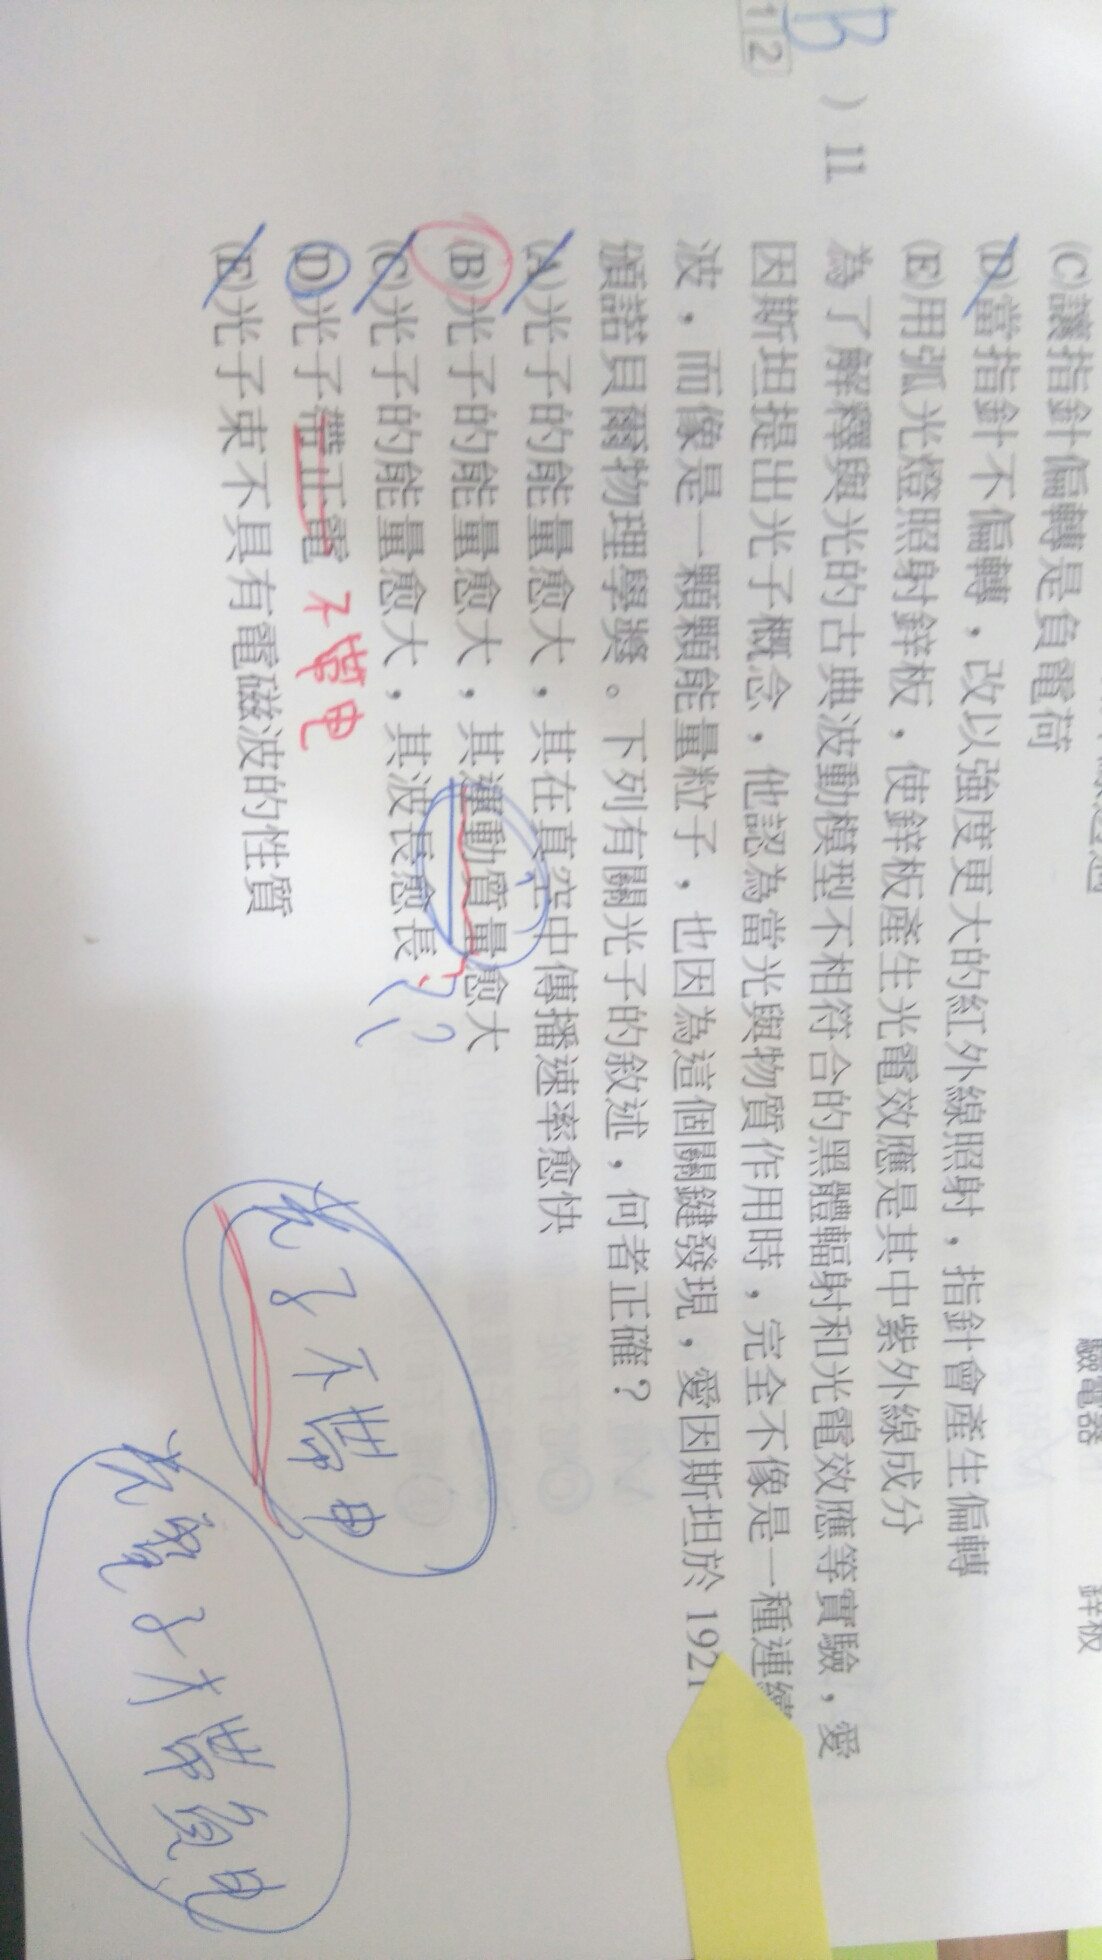 (C)讓指針偏轉是負電荷
(D)當指針不偏轉，改以強度更大的紅外線照射，指針會產生偏轉
(E)用弧光燈照射鋅板，使鋅板產生光電效應是其中紫外線成分
驗電器
鋅板
B
12
) 11 為了解釋與光的古典波動模型不相符合的黑體輻射和光電效應等實驗，愛
因斯坦提出光子概念，他認為當光與物質作用時，完全不像是一種連續
波，而像是一顆顆能量粒子，也因為這個關鍵發現，愛因斯坦於 1921
頒諾貝爾物理學獎。下列有關光子的敘述，何者正確？
(A)光子的能量愈大，其在真空中傳播速率愈快
(B)光子的能量愈大，其運動質量愈大
(C)光子的能量愈大，其波長愈長
??
(D)光子帶正電 不帶电
(E)光子束不具有電磁波的性質
光子不帶电
光電子才帶負电